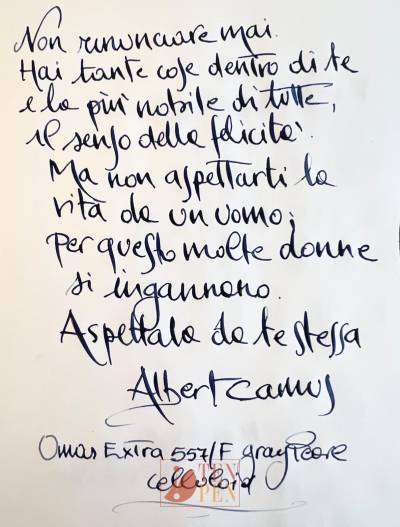 Non rinunciare mai.
Hai tante cose dentro di te
e la più nobile di tutte,
il senso della felicità.
Ma non aspettarti la
vita da un uomo;
per questo molte donne
si ingannano.
Aspettala da te stessa
Albert Camus
Omas Extra 557/F gray Pearl
celluloid
TEN
PEN